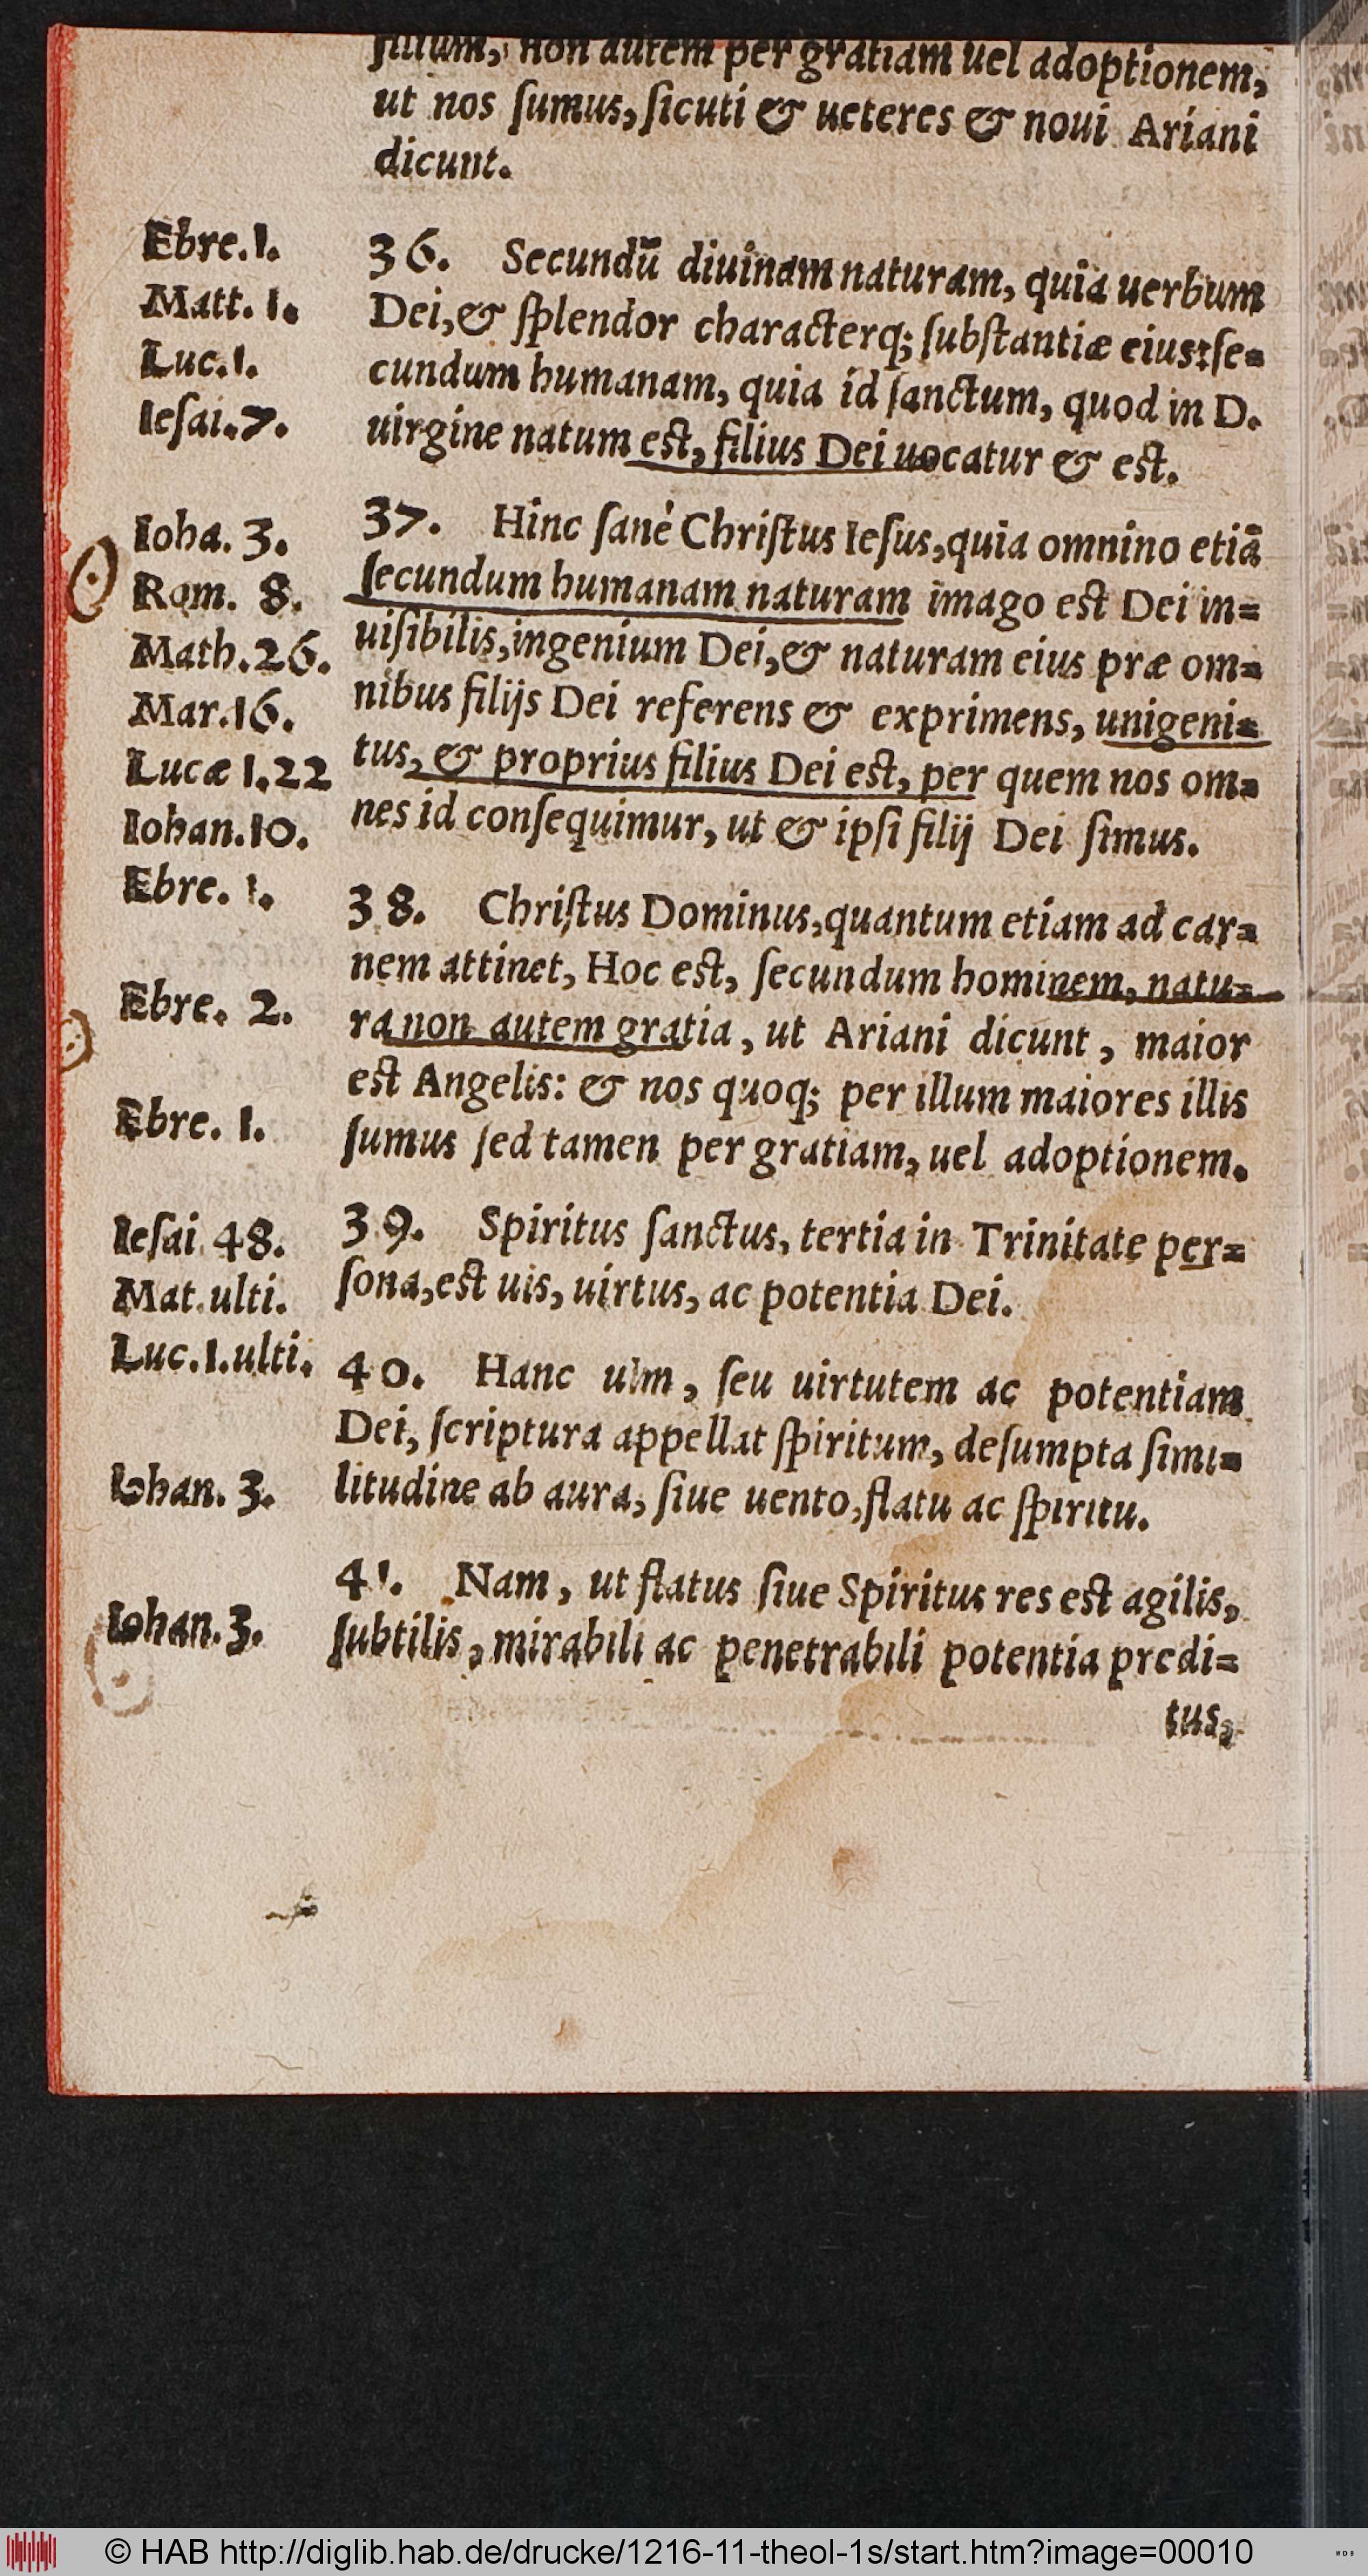 filium, non autem per gratiam uel adoptionem,
ut nos ſumus, ſicuti & ueteres & noui Ariani
dicunt.
Ebre. 1.
Matt. 1.
Luc. 1.
Ieſai. 7.
36. Secundū diuinam naturam, quia uerbum
Dei, & ſplendor characterq; ſubſtantiæ eius: ſe=
cundum humanam, quia id ſanctum, quod in D.
uirgine natum est, filius Dei uocatur & est.
Ioha. 3.
Rom. 8.
Math. 26.
Mar. 16.
Lucæ 1. 22
Iohan. 10.
Ebre. 1.
37. Hinc ſanè Chriſtus Ieſus, quia omnino etiā
ſecundum humanam naturam imago est Dei in=
uiſibilis, ingenium Dei, & naturam eius præ om=
nibus filijs Dei referens & exprimens, unigeni=
tus, & proprius filius Dei est, per quem nos om=
nes id conſequimur, ut & ipſi filij Dei ſimus.
Ebre. 2.
Ebre. 1.
38. Chriſtus Dominus, quantum etiam ad car=
nem attinet, Hoc est, ſecundum hominem, natu=
ra non autem gratia, ut Ariani dicunt, maior
est Angelis: & nos quoq; per illum maiores illis
ſumus ſed tamen per gratiam, uel adoptionem.
Ieſai 48.
Mat. ulti.
Luc. 1. ulti.
39. Spiritus ſanctus, tertia in Trinitate per=
ſona, est uis, uirtus, ac potentia Dei.
Iohan. 3.
40. Hanc uim, ſeu uirtutem ac potentiam
Dei, ſcriptura appellat ſpiritum, deſumpta ſimi=
litudine ab aura, ſiue uento, flatu ac ſpiritu.
Iohan. 3.
41. Nam, ut flatus ſiue Spiritus res est agilis,
ſubtilis, mirabili ac penetrabili potentia predi=
tus,
© HAB http://diglib.hab.de/drucke/1216-11-theol-1s/start.htm?image=00010